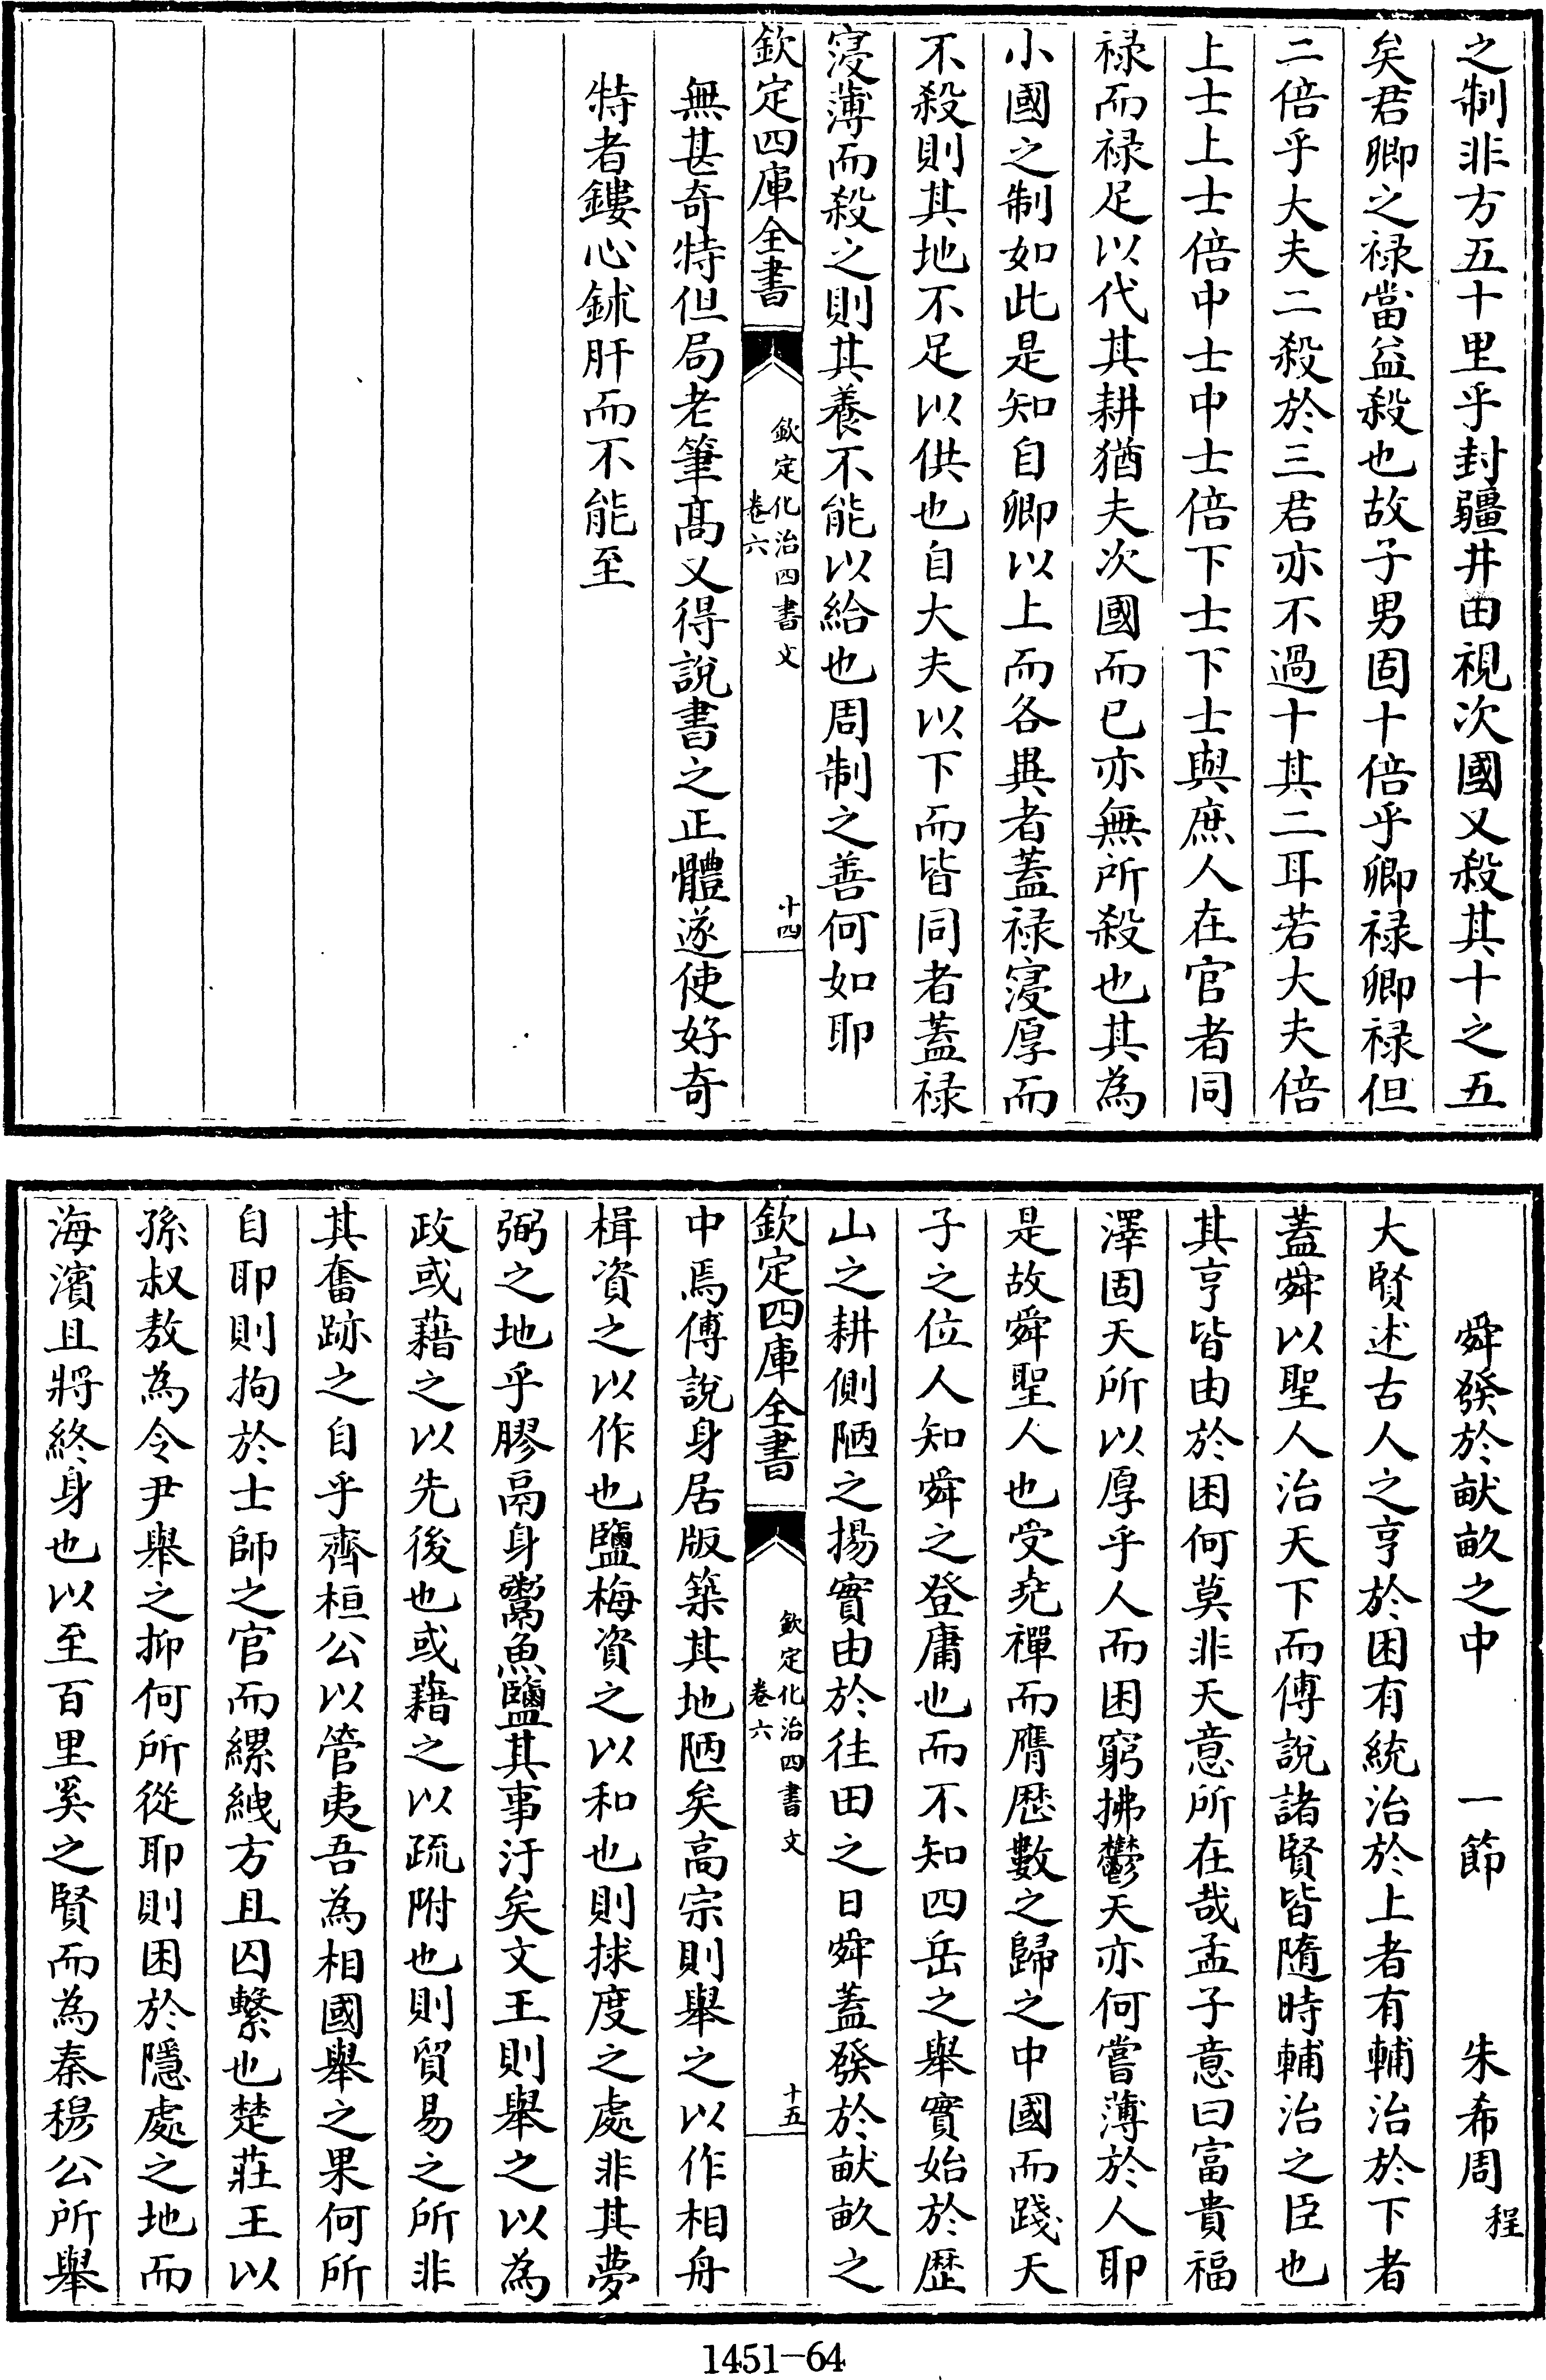 之制非方五十里乎封疆井田視次國又殺其十之五
矣君卿之祿當益殺也故子男固十倍乎卿祿卿祿但
二倍乎大夫二殺於三君亦不過十其二耳若大夫倍
上士上士倍中士中士倍下士下士與庶人在官者同
祿而祿足以代其耕猶夫次國而已亦無所殺也其為
小國之制如此是知自卿以上而各異者蓋祿寖厚而
不殺則其地不足以供也自大夫以下而皆同者蓋祿
寖薄而殺之則其養不能以給也周制之善何如耶
欽定四庫全書
欽定化治四書文
卷六
十四
無甚奇特但局老筆髙又得說書之正體遂使好奇
特者鏤心鉥肝而不能至
舜發於畎畝之中 一節 朱希周 程
大賢述古人之亨於困有統治於上者有輔治於下者
蓋舜以聖人治天下而傅說諸賢皆隨時輔治之臣也
其亨皆由於困何莫非天意所在哉孟子意曰富貴福
澤固天所以厚乎人而困窮拂鬱天亦何嘗薄於人耶
是故舜聖人也受堯禪而膺歴數之歸之中國而踐天
子之位人知舜之登庸也而不知四岳之舉實始於歴
山之耕側陋之揚實由於往田之日舜蓋發於畎畝之
欽定四庫全書
欽定化治四書文
卷六
十五
中焉傅說身居版築其地陋矣高宗則舉之以作相舟
楫資之以作也鹽梅資之以和也則捄度之處非其夢
弼之地乎膠鬲身鬻魚鹽其事汙矣文王則舉之以為
政或藉之以先後也或藉之以疏附也則貿易之所非
其奮跡之自乎齊桓公以管夷吾為相國舉之果何所
自耶則拘於士師之官而縲絏方且囚繫也楚莊王以
孫叔敖為令尹舉之抑何所從耶則困於隱處之地而
海濱且將終身也以至百里奚之賢而為秦穆公所舉
1451-64